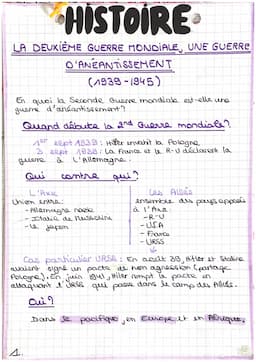 HISTOIRE
LA DEUXIÈME GUERRE MONDIALE, UNE GUERRE
D'ANÉANTISSEMENT
(1939-1945)
En quoi la Seconde Guerre mondiale est-elle une
guerre d'anéantissement?
Quand débute la 2nd Guerre mondiale?
1er sept 1939: Hitler envahit la Pologne
3 sept 1939: La France et le R-U déclarent la
guerre à l'Allemagne.
Qui contre qui?
L'Axe
Union entre:
- Allemagne nazie
- Italie de Mussolini
- Le Japon
Les Alliés
ensemble des pays opposés
à l'Axe
- R-U
- USA
- France
- URSS
Cas particulier URSS: En août 39, Hitler et Staline
avaient signé un pacte de non agression (partage
Pologne). En juin 1941, Hitler rompt le pacte en
attaquant l'URSS qui passe dans le camp des Alliés.
Où?
Dans le pacifique, en Europe et en Afrique.
1.